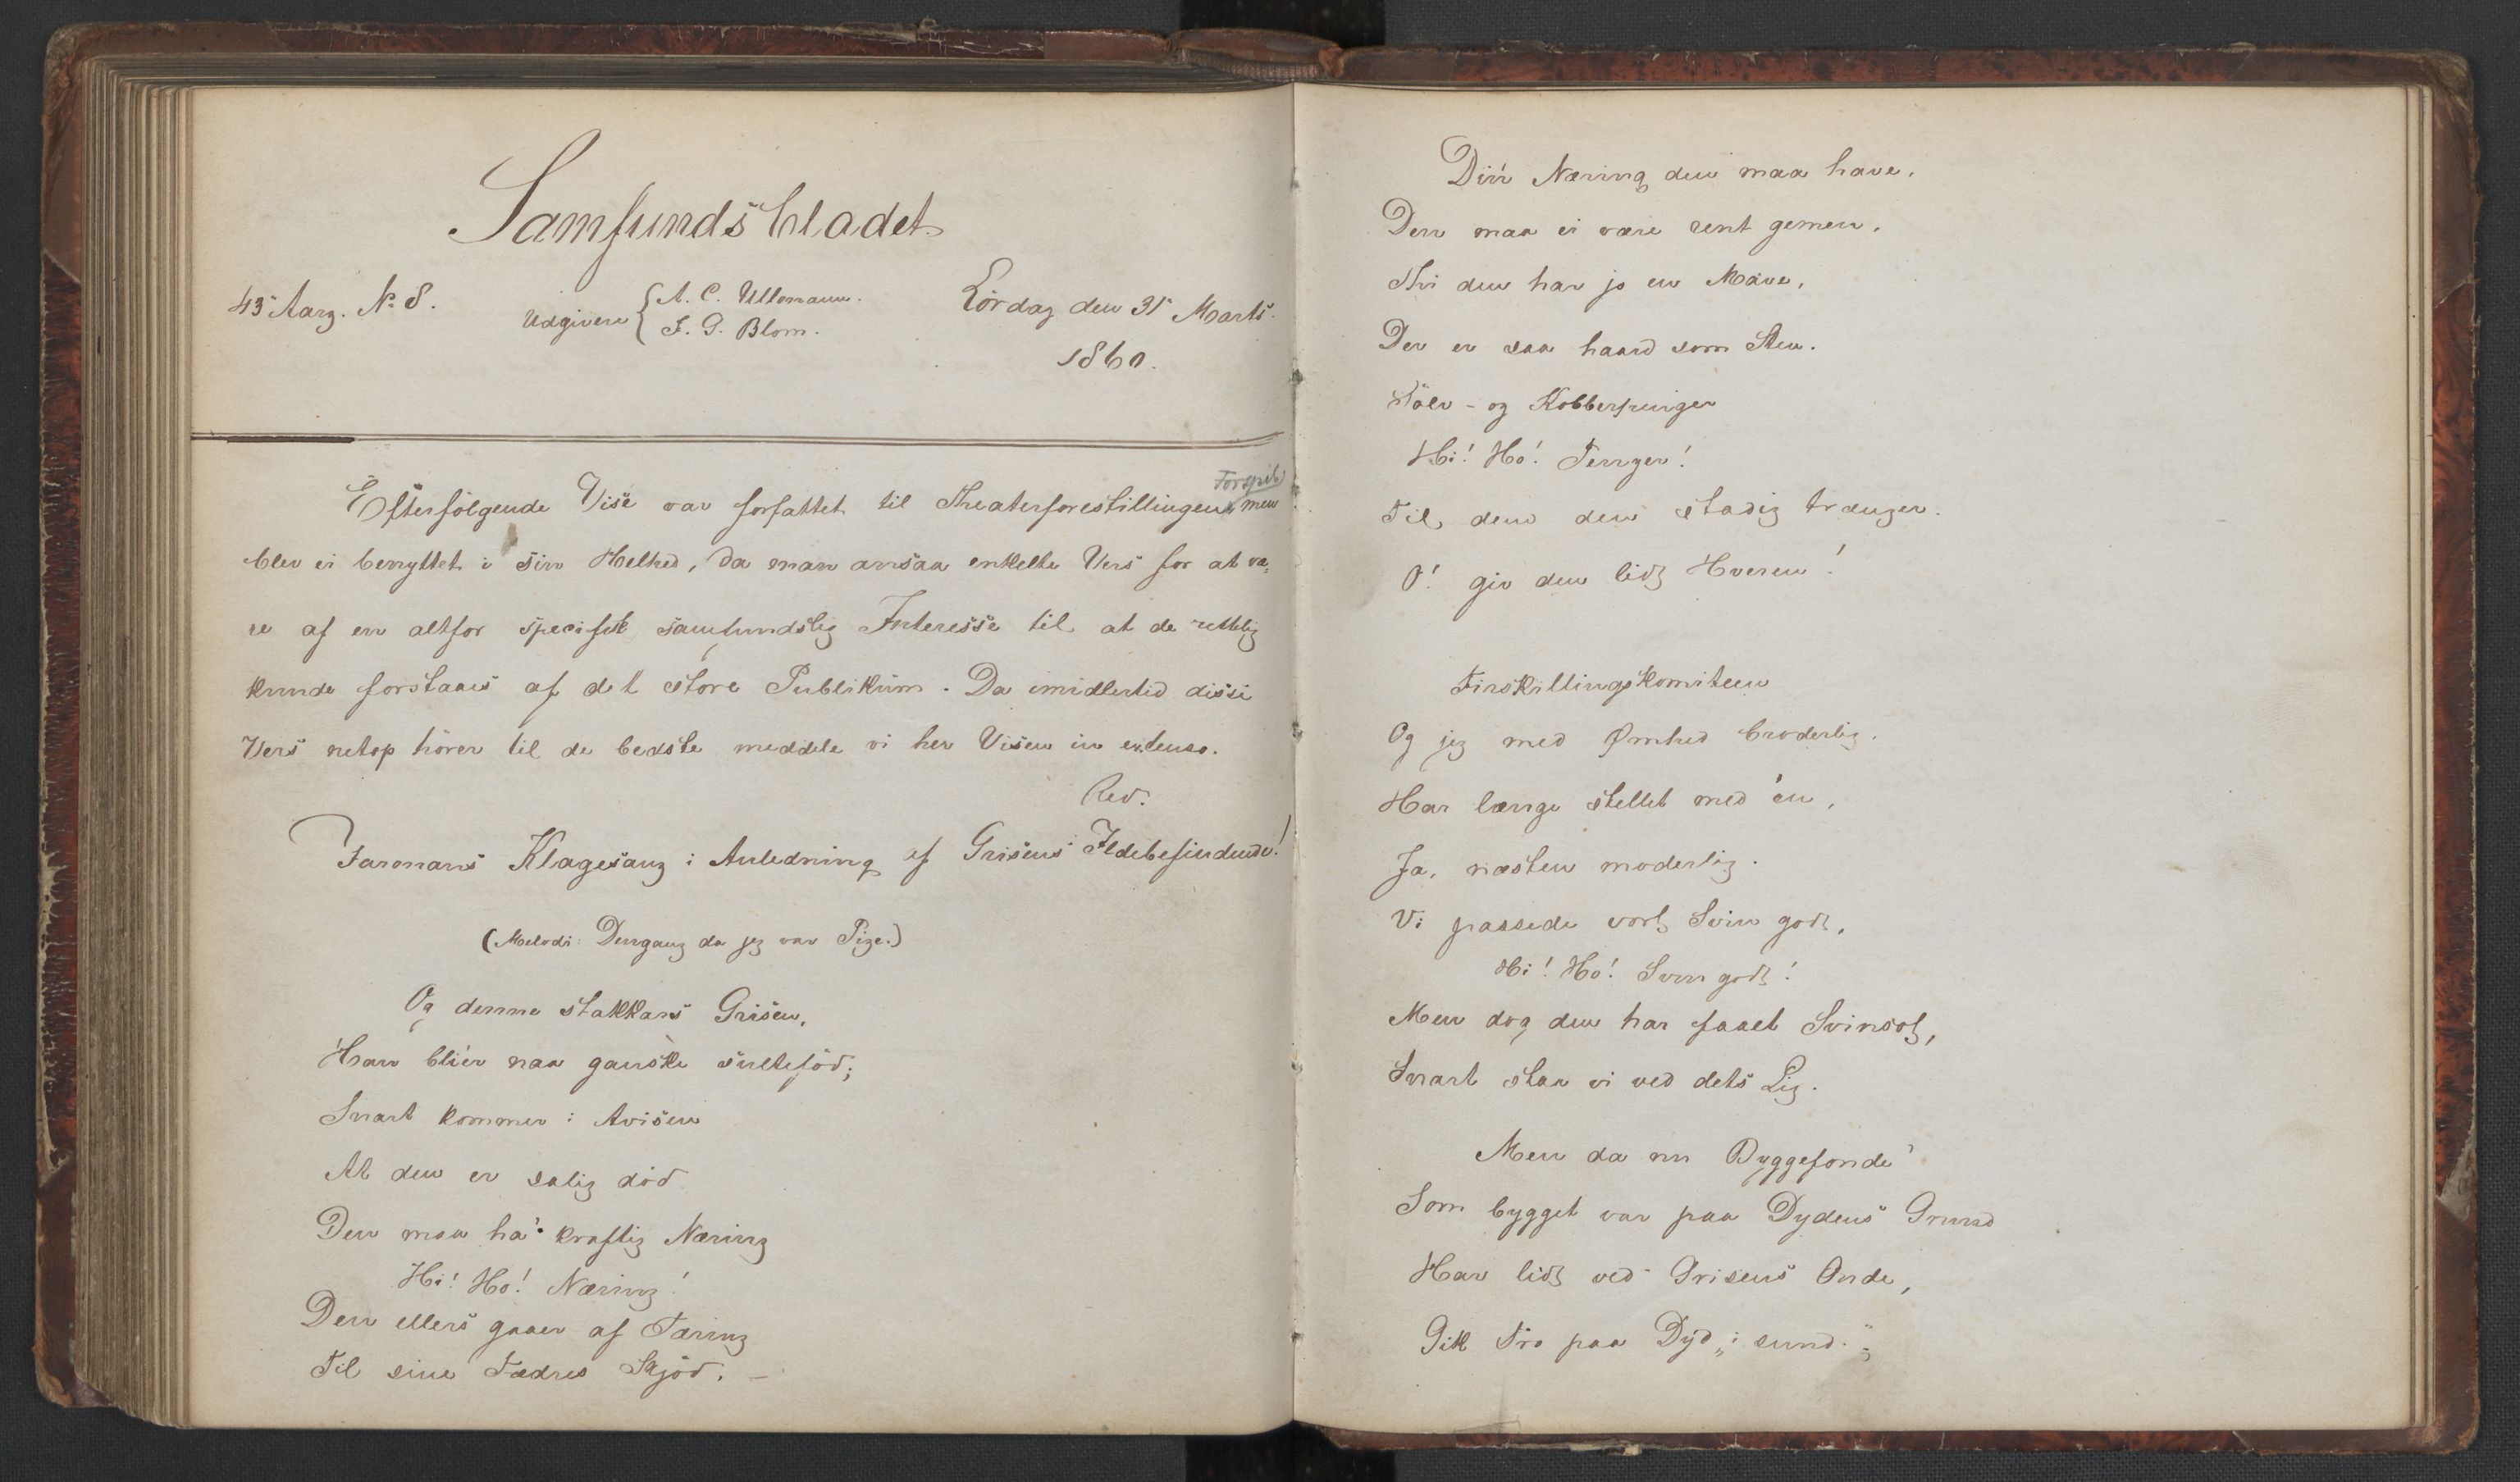 Samfundsbladet
43 Aarg. No 8.
Udgivere { A. C. Ullmann.
F. G. Blom.
Lördag den 31 Marts
1860.
Forspil
Efterfölgende Vise var forfattet til Theaterforestillingens men
blev ei benyttet i sin Helhed, da man ansaa enkelte Vers for at væ-
re af en altfor specifik samfundslig Interesse til at de rettelig
kunde forstaaes af det store Publikum. Da imidlertid disse
Vers netop hörer til de bedste meddele vi her Visen in extenso.
Red.
Farmans Klagesang i Anledning af Grisens Ildebefindende!
(Melodi: Dengang da jeg var Pige.)
Og denne stakkars Grisen,
Han bli'er naa ganske sulteföd;
Snart kommer i Avisen
At den er salig död.
Den maa ha' kraftig Næring
Hi! Ho! Næring!
Den ellers gaaer af Tæring
Til sine Fædres Skjöd. –
Di'n Næring den maa have,
Den maa ei være rent gemen,
Thi den har jo en Mave,
Der er saa haard som Sten.
Sölv- og Kobberpenger
Hi! Ho! Penger!
Til dem den stadig trænger.
O! giv den lidt Hveren!
Firskillingskomiteen
Og jeg med Ømhed broderlig,
Har længe stellet med 'en,
Ja, næsten moderlig.
Vi passede vort Svin godt,
Hi! Ho! Svin godt!
Men dog den har faaet Svinsot,
Snart staa vi ved dets Lig.
Men da nu Byggefonde'
Som bygget var paa Dydens Grund
Har lidt ved Grisens Onde,
Gik Tro paa Dyd „i sund.“;